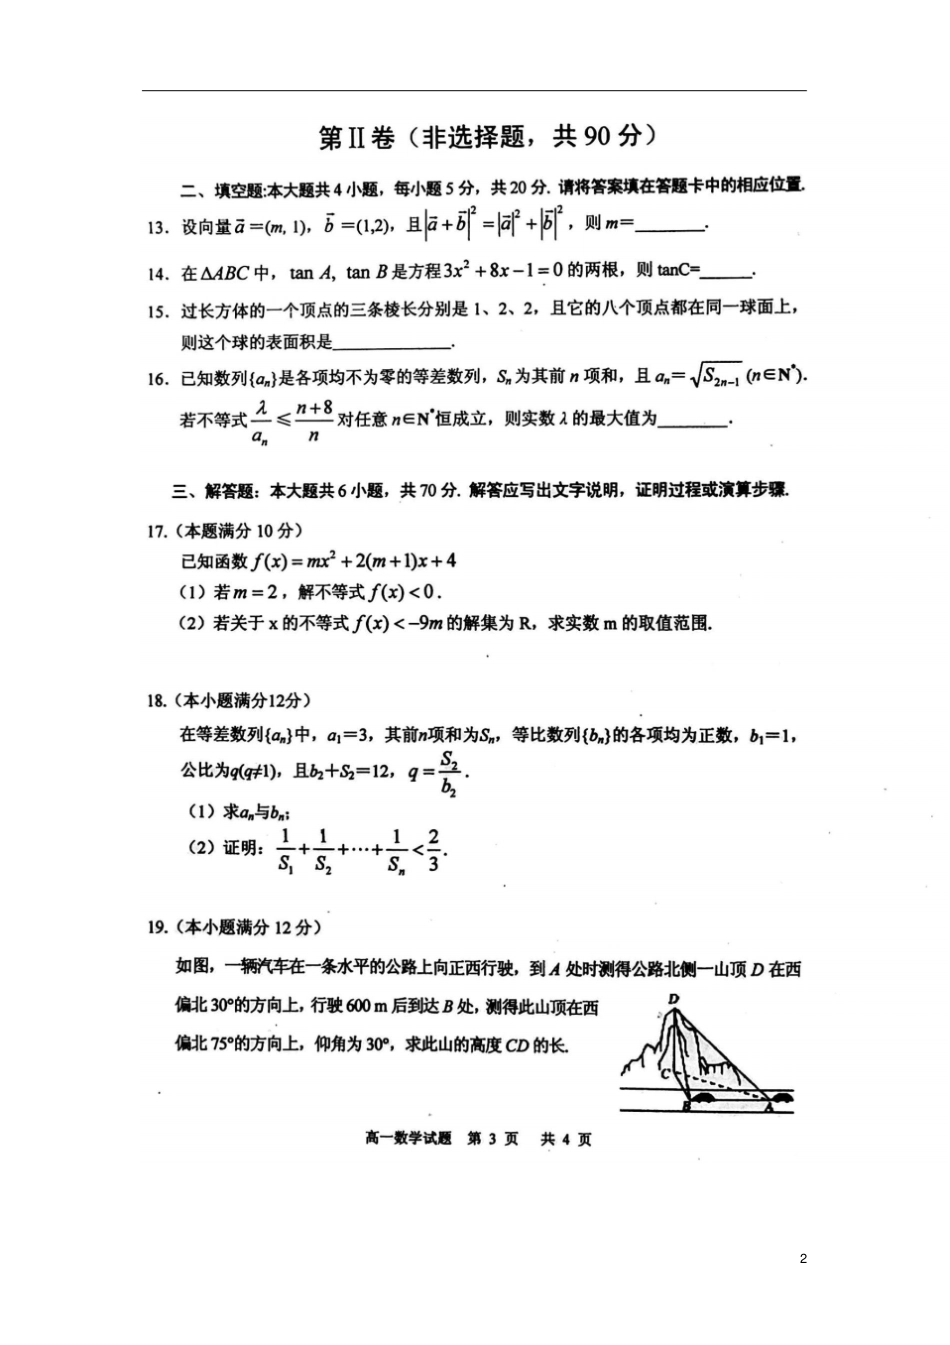 第Ⅱ卷（非选择题，共 90 分）
二、填空题:本大题共 4 小题，每小题 5 分，共 20 分. 请将答案填在答题卡中的相应位置.
13．设向量 a⃗ =(m, 1)，b⃗ =(1,2)，且|a⃗ + b⃗|² = |a⃗|² + |b⃗|²，则 m=________.
14．在 △ABC 中，tan A, tan B 是方程 3x² + 8x − 1 = 0 的两根，则 tanC=______.
15．过长方体的一个顶点的三条棱长分别是 1、2、2，且它的八个顶点都在同一球面上，
则这个球的表面积是____________.
16．已知数列{aₙ}是各项均不为零的等差数列，Sₙ 为其前 n 项和，且 aₙ= √S₂ₙ₋₁ (n∈N*).
若不等式 λ/aₙ ≤ (n+8)/n 对任意 n∈N*恒成立，则实数 λ 的最大值为________.
三、解答题：本大题共 6 小题，共 70 分. 解答应写出文字说明，证明过程或演算步骤.
17.（本题满分 10 分）
已知函数 f(x) = mx² + 2(m + 1)x + 4
（1）若 m = 2 ，解不等式 f(x) < 0 .
（2）若关于 x 的不等式 f(x) < −9m 的解集为 R，求实数 m 的取值范围.
18.（本小题满分12分）
在等差数列{aₙ}中，a₁＝3，其前n项和为Sₙ，等比数列{bₙ}的各项均为正数，b₁＝1，
公比为q(q≠1)，且b₂＋S₂＝12，q = S₂/b₂ .
（1）求aₙ与bₙ;
（2）证明：1/S₁ + 1/S₂ + ⋯ + 1/Sₙ < 2/3.
19.（本小题满分 12 分）
如图，一辆汽车在一条水平的公路上向正西行驶，到 A 处时测得公路北侧一山顶 D 在西
偏北 30°的方向上，行驶 600 m 后到达 B 处，测得此山顶在西
偏北 75°的方向上，仰角为 30°，求此山的高度 CD 的长.
D
C
B
A
高一数学试题 第 3 页 共 4 页
2